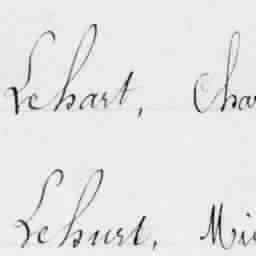 Lehart, Char
Lehurt, Mi